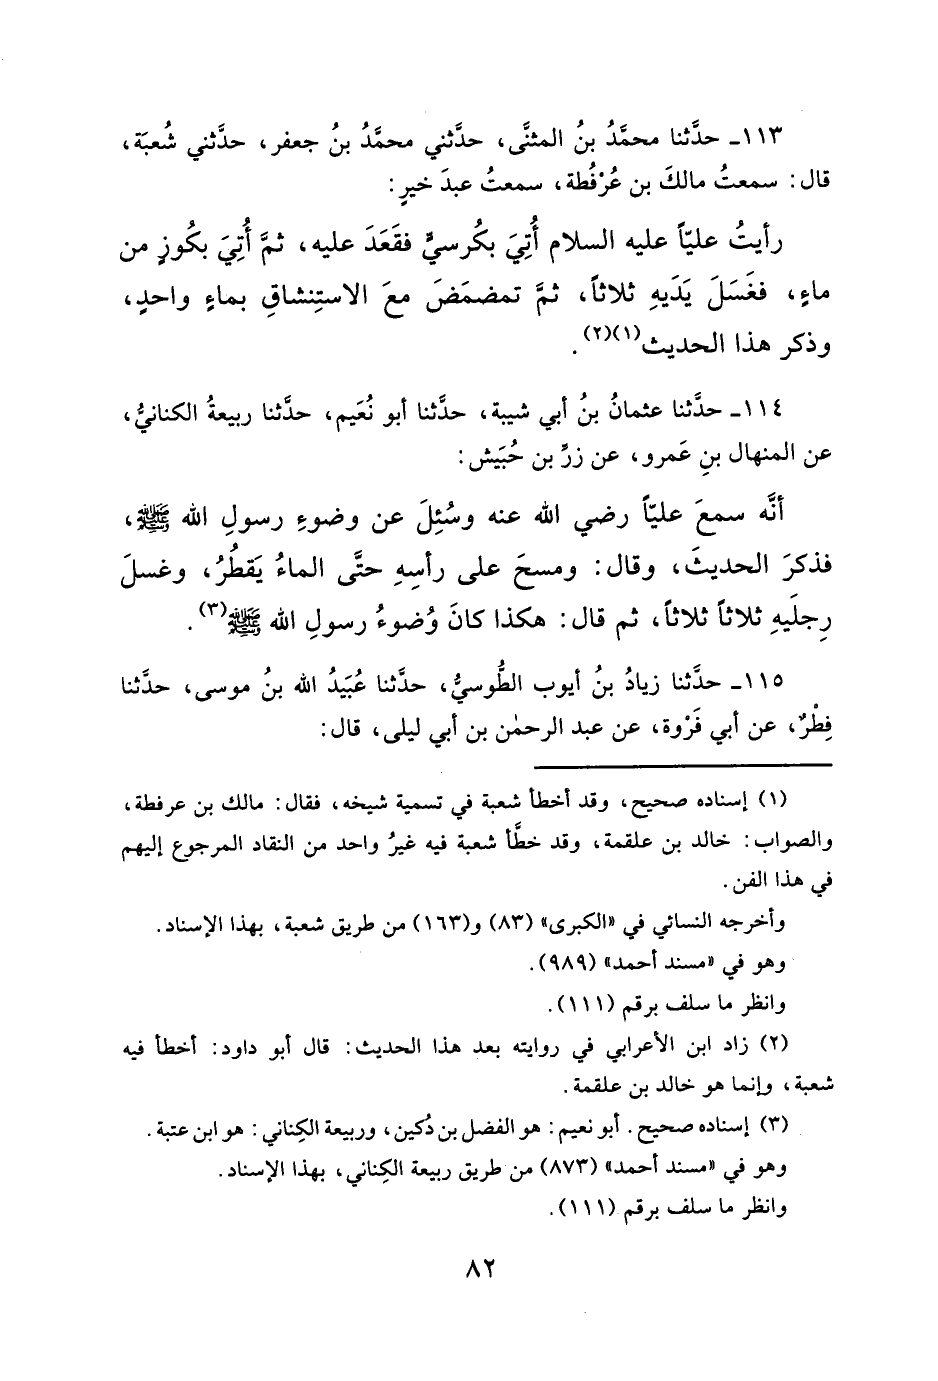 ١١٣ـ حدَّثنا محمَّدُ بنُ المثنَّى، حدَّثني محمَّدُ بنُ جعفر، حدَّثني شُعبَة،
قال: سمعتُ مالكَ بن عُرْفُطة، سمعتُ عبدَ خيرٍ:
رأيتُ عليّاً عليه السلام أُتِيَ بكُرسيٍّ فقَعَدَ عليه، ثمَّ أُتِيَ بكُوزٍ من
ماءٍ، فغَسَلَ يَدَيهِ ثلاثاً، ثمَّ تمضمَضَ معَ الاستِنشاقِ بماءٍ واحدٍ،
وذكر هذا الحديث(١)(٢).
١١٤ـ حدَّثنا عثمانُ بنُ أبي شيبة، حدَّثنا أبو نُعَيم، حدَّثنا ربيعةُ الكنانيُّ،
عن المنهال بنِ عَمرو، عن زرِّ بن حُبَيش:
أنَّه سمعَ عليّاً رضي الله عنه وسُئِلَ عن وضوءِ رسولِ الله ﷺ،
فذكرَ الحديثَ، وقال: ومسحَ على رأسِهِ حتَّى الماءُ يَقطُرُ، وغسلَ
رِجلَيهِ ثلاثاً ثلاثاً، ثم قال: هكذا كانَ وُضوءُ رسولِ الله ﷺ(٣).
١١٥ـ حدَّثنا زيادُ بنُ أيوب الطُّوسيُّ، حدَّثنا عُبَيدُ الله بنُ موسى، حدَّثنا
فِطْرٌ، عن أبي فَرْوة، عن عبد الرحمٰن بن أبي ليلى، قال:
(١) إسناده صحيح، وقد أخطأ شعبة في تسمية شيخه، فقال: مالك بن عرفطة،
والصواب: خالد بن علقمة، وقد خطَّأ شعبة فيه غيرُ واحد من النقاد المرجوع إليهم
في هذا الفن.
وأخرجه النسائي في «الكبرى» (٨٣) و(١٦٣) من طريق شعبة، بهذا الإسناد.
وهو في «مسند أحمد» (٩٨٩).
وانظر ما سلف برقم (١١١).
(٢) زاد ابن الأعرابي في روايته بعد هذا الحديث: قال أبو داود: أخطأ فيه
شعبة، وإنما هو خالد بن علقمة.
(٣) إسناده صحيح. أبو نعيم: هو الفضل بن دُكين، وربيعة الكِناني: هو ابن عتبة.
وهو في «مسند أحمد» (٨٧٣) من طريق ربيعة الكِناني، بهذا الإسناد.
وانظر ما سلف برقم (١١١).
٨٢